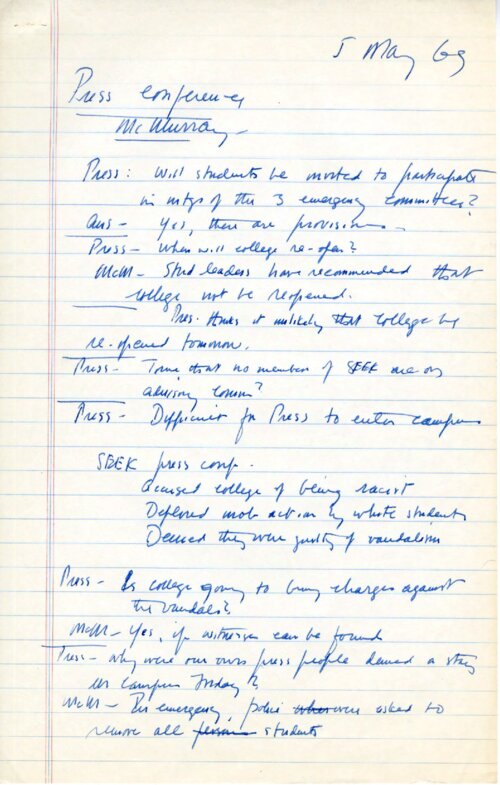 5 May 69
Press conference
McMurray -
Press: Will students be invited to participate
in mtgs of the 3 emergency committees?
Ans - Yes, there are provisions.
Press - When will college re-open?
McM - Stud leaders have recommended that
college not be reopened.
Pres. thinks it unlikely that college be
re-opened tomorrow.
Press - True that no members of SEEK are on
advisory comm?
Press - Difficult for Press to enter campus
SEEK press conf -
Accused college of being racist
Deplored mob action by white students
Denied they were guilty of vandalism
Press - Is college going to bring charges against
the vandals?
McM - Yes, if witnesses can be found
Press - why were our own press people denied a stay
on campus Friday?
McM - In emergency, police were asked to
remove all students